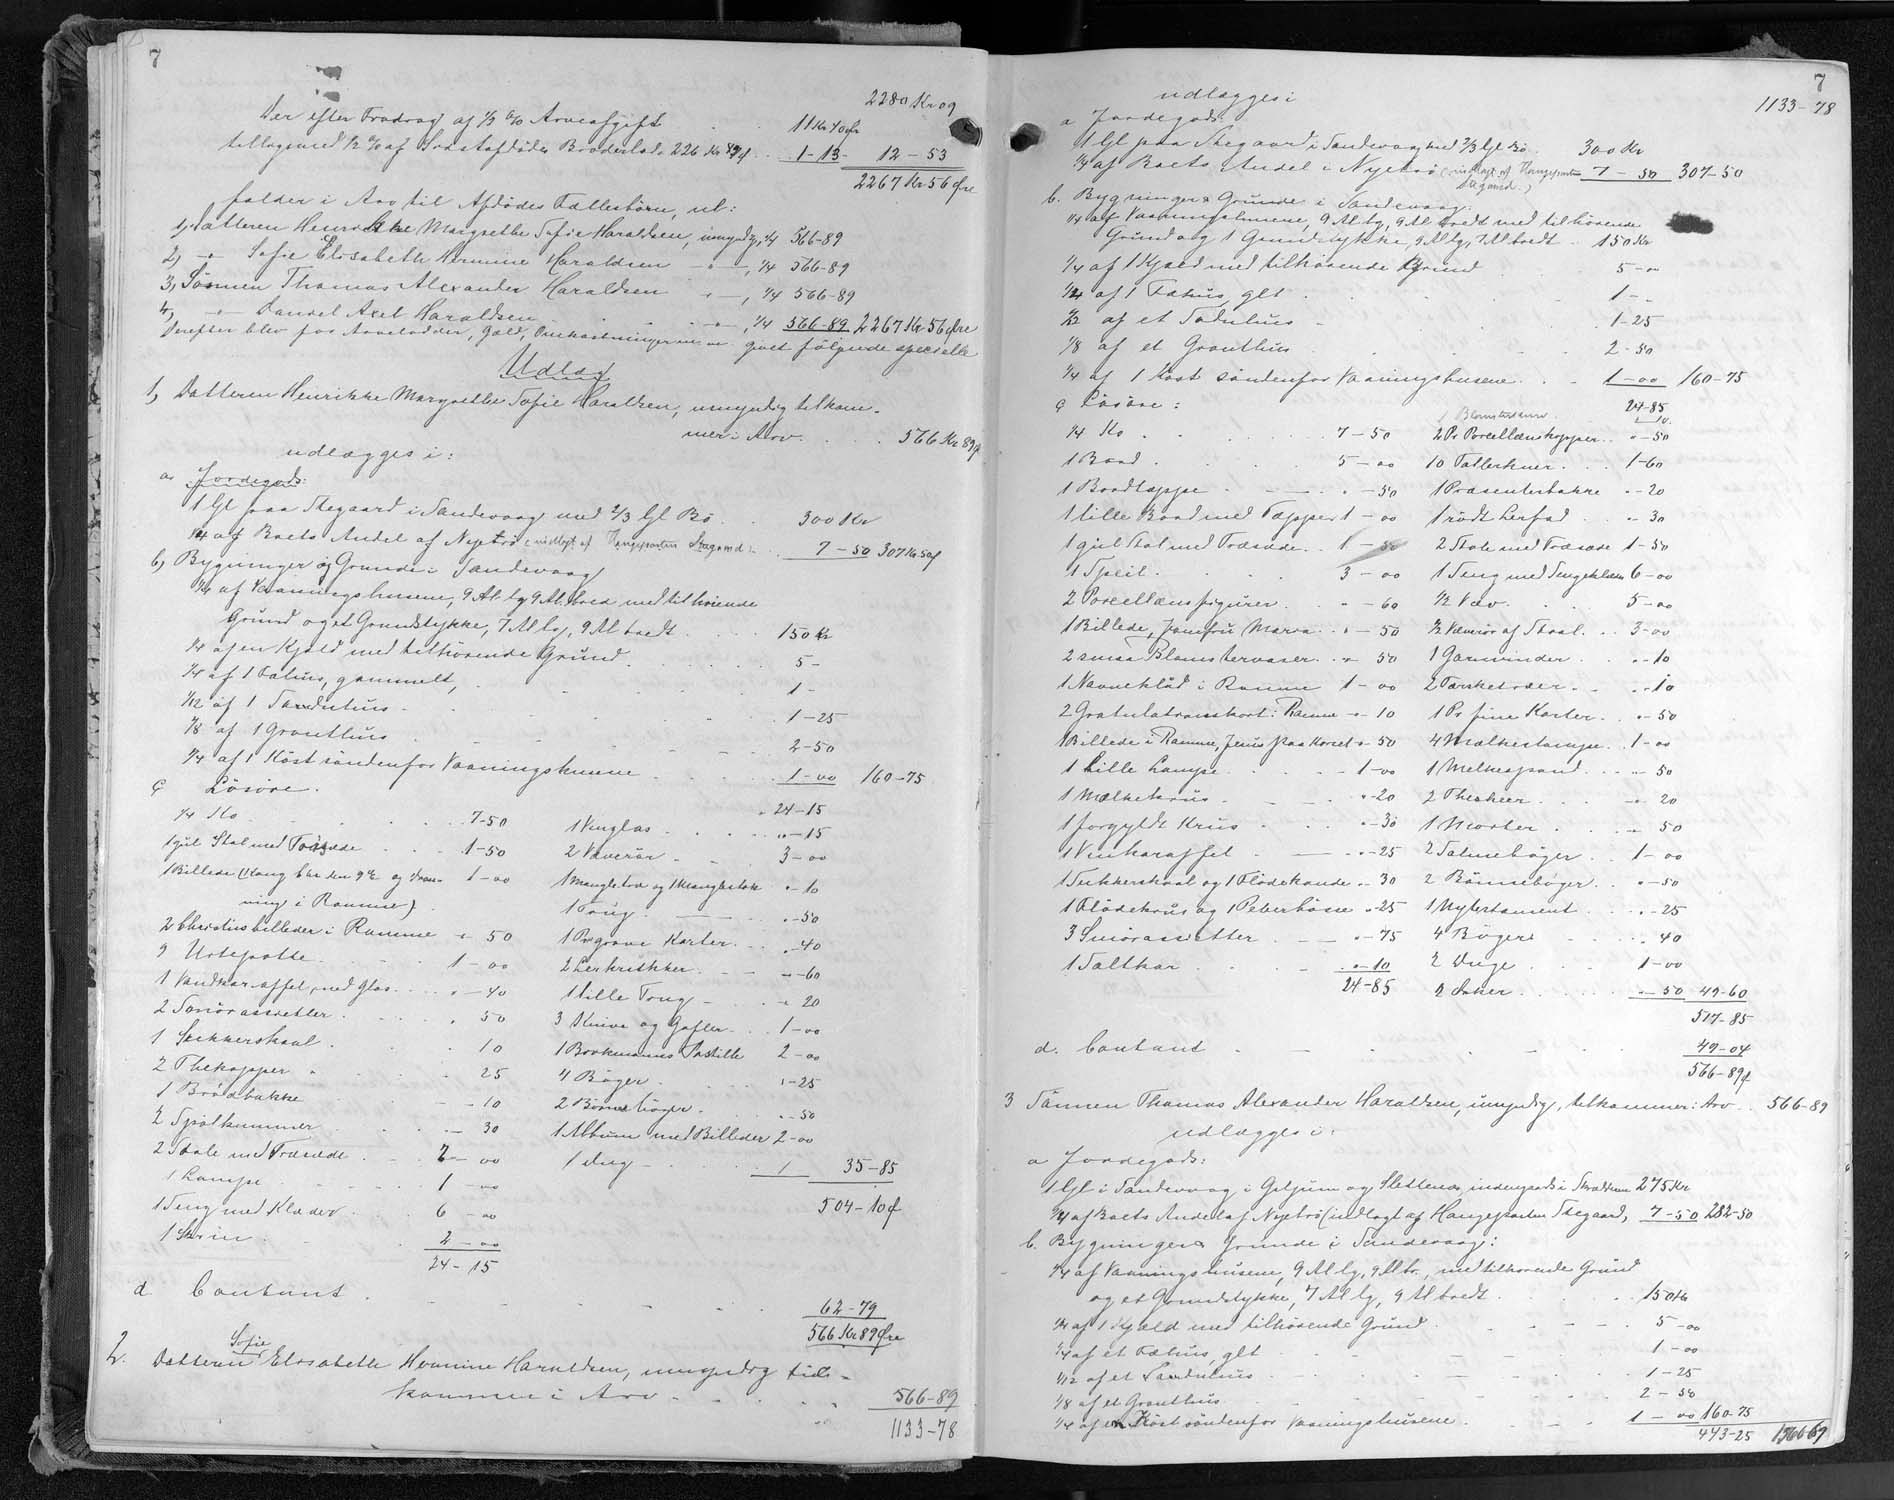 7
2280 Kr 09
Der efter Fradrag af ½ % Arveafgift . . 11 Kr 40 Ør
tillagemed ½ % af Broderlod 226 Kr 89 Ø . . 1-13- 12-53
2267 Kr 56 Øre
falder i Arv til Afdødes Fællesbørn, nl:
1, Datteren Henrikke Margrethe Sofie Haraldsen, umyndig, ¼ 566-89
2, -"- Sofie Elisabeth Hermine Haraldsen -"-, ¼ 566-89
3, Sønnen Thomas Alexander Haraldsen " -, ¼ 566-89
4, -"- Daniel Axel Haraldsen . . . " -, ¼ 566-89 2267 Kr 56 Øre
Derefter blev for Arvelodder, Gæld, Omkostninger m. v. givet følgende specielle
Udlæg
1, Datteren Henrikke Margrethe Sofie Haraldsen, umyndig tilkom-
mer i Arv . . . 566 Kr 89 Ø
udlægges i:
a. Jordegods:
1 Gl paa Stegaard i Sandevaag med 2/3 Gl Bø . . 300 Kr
¼ af Boets Andel af Nytrø (indlagt af Hangeparten Stegaard) 7-50 307 Kr 50 Ø
b, Bygninger og Grunde i Sandevaag
¼ af Vaaningshusene, 9 Al. lg, 9 Al. bred med tilhørende
Grund og et Grundstykke, 7 Al lg, 9 Al bredt . . . 150 Kr
¼ af en Hjald med tilhørende Grund . . . 5-
¼ af 1 Fæhus, gammelt, . . . 1-
1/12 af 1 Sanduhus . . . 1-25
1/8 af 1 Gronthus . . . 2-50
¼ af 1 Kost søndenfor Vaaningshusene . . . 1-00 160-75
c Løsøre.
¼ Ko . . . 7-50
1 gul Stol med Træsæde . . . 1-50
1 Billede (Kong Chr. den 9de og Dron- 1-00
ning i Ramme)
2 Christusbilleder i Ramme " 50
9 Urtepotte . . . 1-00
1 Vandkaraffel, med Glas . . . "-40
2 Smørassietter . . . " 50
1 Sukkerskaal . . . 10
2 Thekopper . . . 25
1 Brødbakke - -10
2 Spølkummer . . . "- 30
2 Stole med Træsæde . . 2-00
1 Lampe . . . 1-00
1 Seng med Klæder . . 6-00
1 Skrin . . . 2-00
24-15
24-15
1 Vinglas . . . "-15
2 Væverør . . . 3-00
1 Mangletræ og 1 Manglestok "-10
1 Trug . . . "-50
1 Pr grove Karter . . "-40
2 Lerkrukker . . "-60
1 lille Trug . . " 20
3 Knive og Gafler . . 1-00
1 Brokmanns Postille 2-00
4 Bøger . . . "-25
2 Bønnebøger . . "-50
1 Album med Billeder 2-00
1 Dug . . . 1 35-85
504-10 Ø
d Contant . . . 62-79
566 Kr 89 Øre
2. Datteren Sofie Elisabeth Hermine Haraldsen, umyndig til-
kommer i Arv . . . 566-89
1133-78
7
1133-78
udlægges i
a Jordegods:
1 Gl paa Stegaard i Sandevaag med 2/3 Gl Bø . 300 Kr
¼ af Boets Andel i Nytrø (indlagt af Hangeparten Stegaard.) 7-50 307-50
b. Bygninger & Grunde i Sandevaag:
¼ af Vaaningshusene, 9 Al lg, 9 Al bredt med tilhørende
Grund og 1 Grundstykke, 9 Al lg, 7 Al bredt . 150 Kr
¼ af 1 Hjald med tilhørende Grund . . . 5-00
¼ af 1 Fæhus, glt . . . 1--
1/12 af et Saduhus . . . 1-25
1/8 af et Gronthus . . . 2-50
¼ af 1 Kost søndenfor Vaaningshusene . . 1-00 160-75
c Løsøre:
¼ Ko . . . 7-50
1 Bord . . . 5-00
1 Bordtæppe . . . "-50
1 lille Bord med Tæppe 1-00
1 gul Stol med Træsæde . . 1-50
1 Speil . . . 3-00
2 Porcellænsfigurer . . "-60
1 Billede, Jomfru Maria . . "-50
2 smaa Blomstervaser . . " 50
1 Navneklud i Ramme 1-00
2 Gratulationskort i Ramme "-10
1 Billede i Ramme, Jesus paa Korset "-50
1 Lille Lampe . . . 1-00
1 Mælkekrus . . . "-20
1 forgyldt Krus . . . "-30
1 Vinkaraffel . . . "-25
1 Sukkerskaal og 1 Flødekande "-30
1 Flødekrus og 1 Peberbøsse "-25
3 Smørassietter . . . "-75
1 Saltkar . . . "-10
24-85
24-85
1 Blomsterkurv . 10
2 Pr Porcellænskopper . . "-50
10 Tallerkner . . . 1-60
1 Præsenterbakke "-20
1 rødt Lerfad . . "-30
2 Stole med Træsæde 1-50
1 Seng med Sengeklæder 6-00
½ Væv . . . 5-00
½ Væverør af Staal . . 3-00
1 Garnvinder . . "-10
2 Tørketræer . . "-10
1 Pr fine Karter . . "-50
4 Mælkestampe . . 1-00
1 Melkespand . . . "-50
2 Theskeer . . . " 20
1 Morter . . . " 50
2 Salmebøger . . 1-00
2 Bønnebøger . . "-50
1 Nytestament . . . "-25
4 Bøger . . . 40
2 Duge . . . 1-00
2 Sæker . . . "-50 49-60
517-85
d. Contant . . . 49-04
566-89 Ø
3 Sønnen Thomas Alexander Haraldsen, umyndig, tilkommer i Arv . . 566-89
udlægges i:
a Jordegods:
1 Gl i Sandevaag i Giljum og Slettenes indengards i 275 Kr
¼ af Boets Andel af Nytrø (indlagt af Hangeparten Stegaard, 7-50 282-50
b. Bygninger & Grunde i Sandevaag:
¼ af Vaaningshusene, 9 Al lg, 9 Al br., med tilhørende Grund
og et Grundstykke, 7 Al lg, 9 Al bredt . . . 150 Kr
¼ af 1 Hjæld med tilhørende Grund . . . 5-00
¼ af et Fæhus, glt . . . 1-00
1/12 af et Sanduhus . . . 1-25
1/8 af et Gronthus . . . 2-50
¼ af en Kost søndenfor Vaaningshusene . . . 1-00 160-75
443-25 1700-67